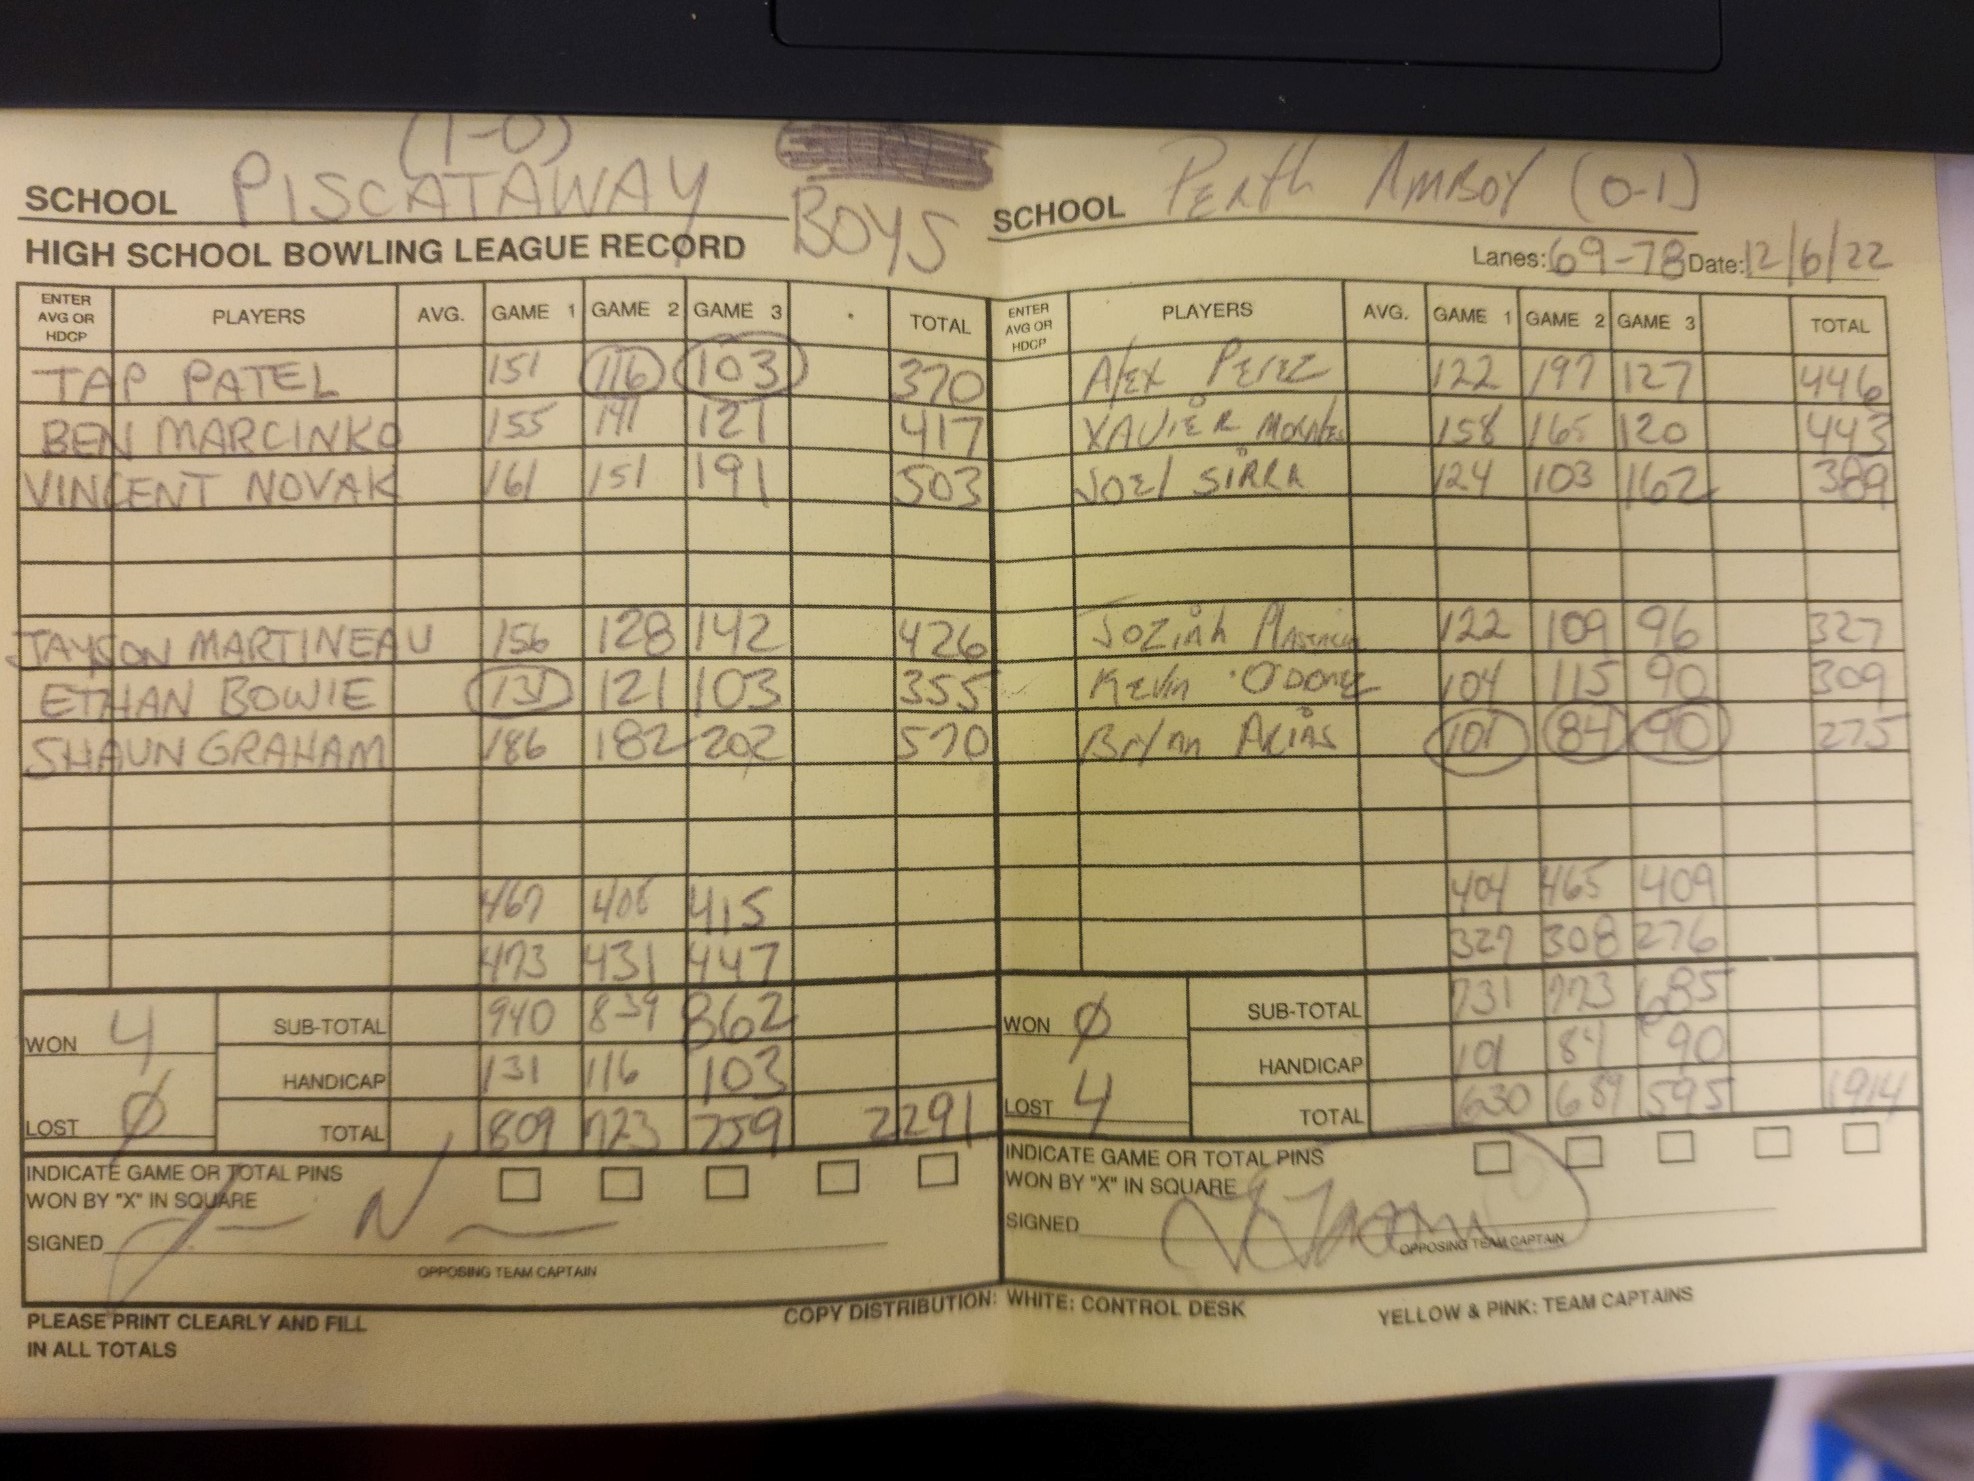 (1-0)
SCHOOL PISCATAWAY BOYS
HIGH SCHOOL BOWLING LEAGUE RECORD
ENTER AVG OR HDCP PLAYERS AVG. GAME 1 GAME 2 GAME 3 TOTAL
TAP PATEL 151 116 103 370
BEN MARCINKO 155 141 121 417
VINCENT NOVAK 161 151 191 503
JAYSON MARTINEAU 156 128 142 426
ETHAN BOWIE 131 121 103 355
SHAUN GRAHAM 186 182 202 570
467 408 415
473 431 447
WON 4
LOST Ø
SUB-TOTAL 940 839 862
HANDICAP 131 116 103
TOTAL 809 723 759 2291
INDICATE GAME OR TOTAL PINS
WON BY "X" IN SQUARE
SIGNED
OPPOSING TEAM CAPTAIN
PLEASE PRINT CLEARLY AND FILL
IN ALL TOTALS
SCHOOL Perth Amboy (0-1)
Lanes: 69-78 Date: 12/6/22
ENTER AVG OR HDCP PLAYERS AVG. GAME 1 GAME 2 GAME 3 TOTAL
Alex Perez 122 197 127 446
XAVIER Morales 158 165 120 443
JOEl SIRRA 124 103 162 389
Joziah 122 109 96 327
Kevin O'Donez 104 115 90 309
Bryan Arias 101 84 90 275
404 465 409
327 308 276
WON Ø
LOST 4
SUB-TOTAL 731 773 685
HANDICAP 101 84 90
TOTAL 630 689 595 1914
INDICATE GAME OR TOTAL PINS
WON BY "X" IN SQUARE
SIGNED
OPPOSING TEAM CAPTAIN
COPY DISTRIBUTION: WHITE: CONTROL DESK YELLOW & PINK: TEAM CAPTAINS